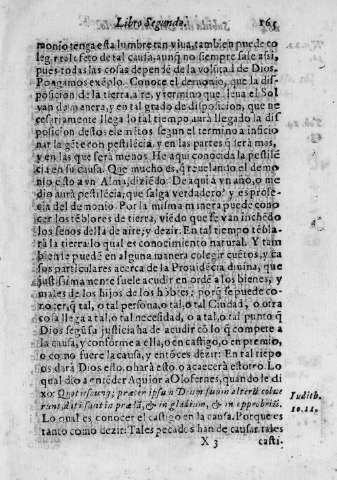 Libro Segundo. 165
monio tenga esta lumbre tan viua, tambien puede co
legir tal efeto de tal causa, aunq̃ no siempre sale assi,
pues todas las cosas depende de la volũtad de Dios.
Pongamos exẽplo. Conoce el demonio, que la dis-
posicion de la tierra, ayre, y termino que lleua el Sol
van de manera, y en tal grado de disposicion, que ne
cessariamente llega lo tal tiempo aura llegado la dis
posicion destos elemẽtos segun el termino a inficio
nar la gẽte con pestilẽcia, y en las partes q̃ sera mas,
y en las que sera menos. He aqui conocida la pestilẽ
cia en su causa. Que mucho es, q̃ reuelando el demo
nio esto a vn Alma, diziẽdo. De aqui a vn año, o me
dio aura pestilẽcia; que salga verdadero? y es profe-
cia del demonio. Por la misma manera puede cono
cer los tẽblores de tierra, viẽdo que se van inchẽdo
los senos della de aire; y dezir. En tal tiempo tẽbla-
rà la tierra lo qual es conocimiento natural. Y tam
biente puedẽ en alguna manera colegir cuẽtos, y ca
sos particulares acerca de la Prouidẽcia diuina, que
justissimamente suele acudir en orde a los bienes, y
males de los hijos de los hõbres; porq̃ se puede co
nocer, q̃ tal, o tal persona, o tal, o tal Ciudad, o otra
cosa llega a tal, o tal necessidad, o a tal, o tal punto q̃
Dios segũ su justicia ha de acudir cõ lo q̃ compete a
la causa, y conforme a ella, o en castigo, o en premio,
o como fuere la causa, y entõces dezir: En tal tiepo
os darà Dios esto, o harà esto, o acaecerà estotro. Lo
qual dio a entẽder Aquior a Olofernes, quando le di
xo: Quotiescunq; præter ipsum Deum suum alterũ colue
runt, dati sunt in prædã, & in gladium, & in opprobriũ.
Judith.
10. 11.
Lo qual es conocer el castigo en la causa. Porque es
tanto como dezir: Tales pecados han de causar tales
X 3 casti.